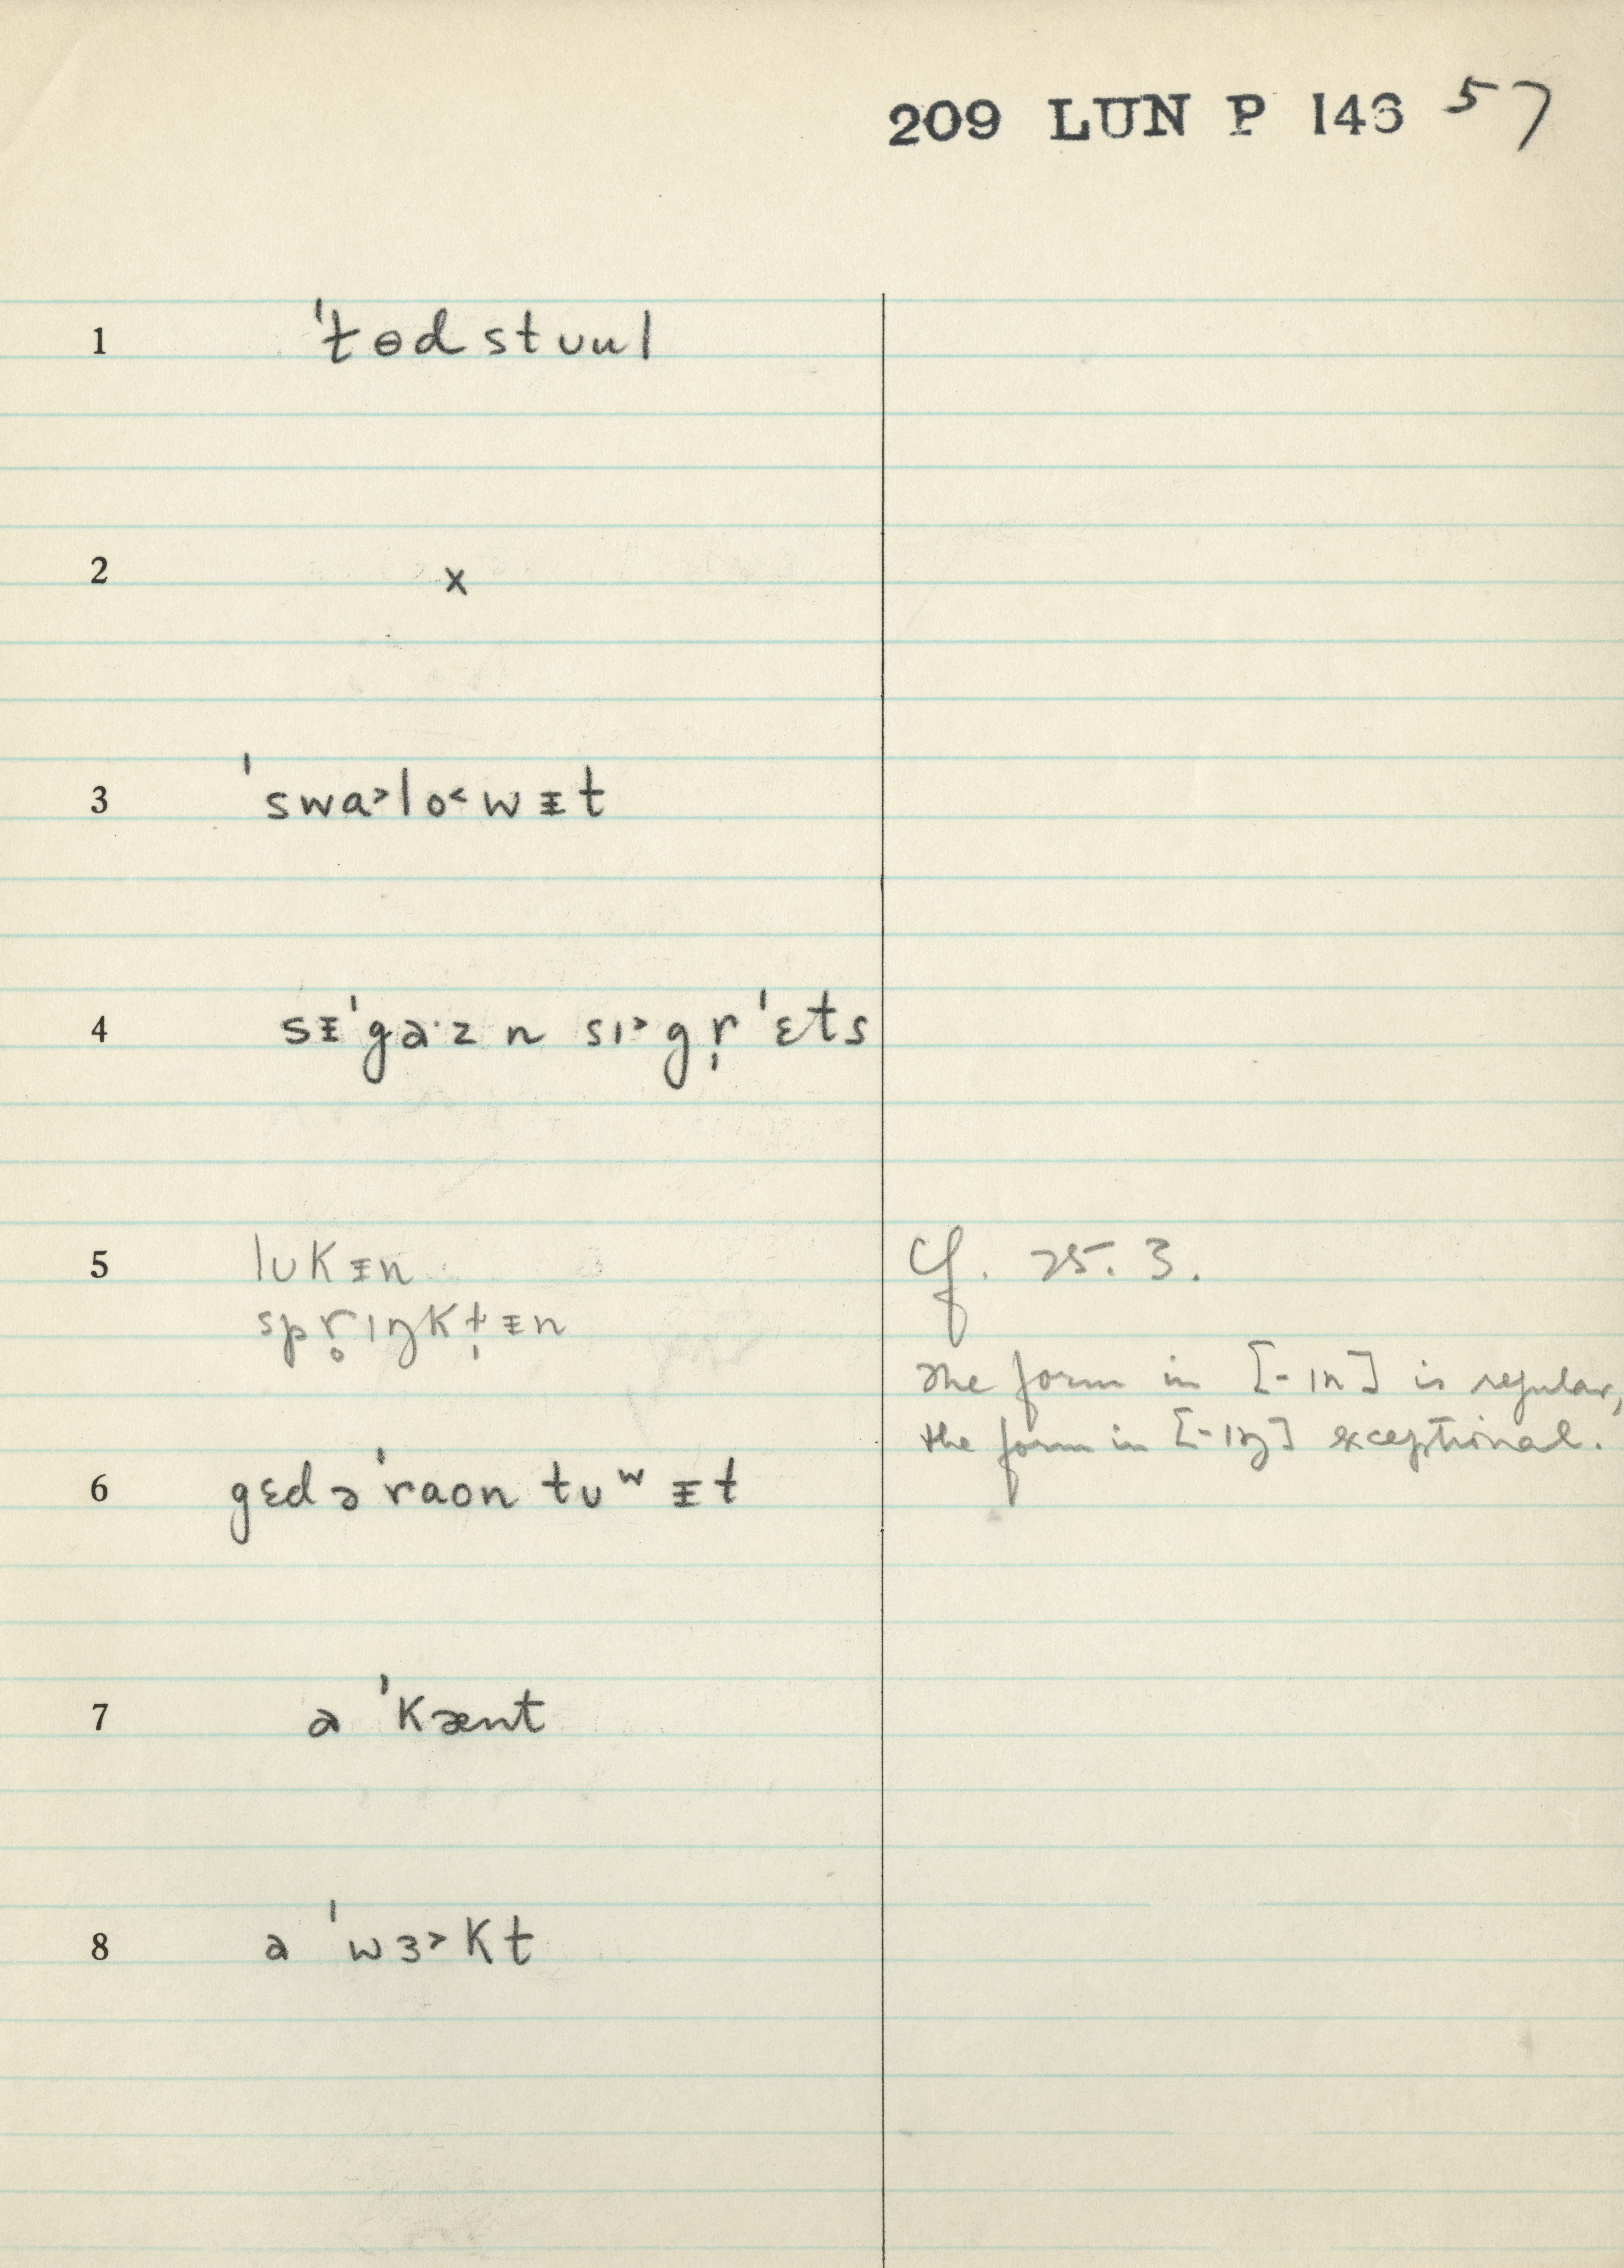 209 LUN P 146 57
1 ˈtɵdstuul
2 x
3 ˈswa˃lo˂wᵻt
4 sᵻˈga·z n sɪ˃gr̩ˈɛts
5 lʊkᵻn
Cf. 25.3.
spr̥ɪŋkt̩ᵻn
The form in [-ɪn] is regular,
the form in [-ɪŋ] exceptional.
6 gɛdəˈraon tʊʷᵻt
7 ə ˈkænt
8 ə ˈwɜ˃kt